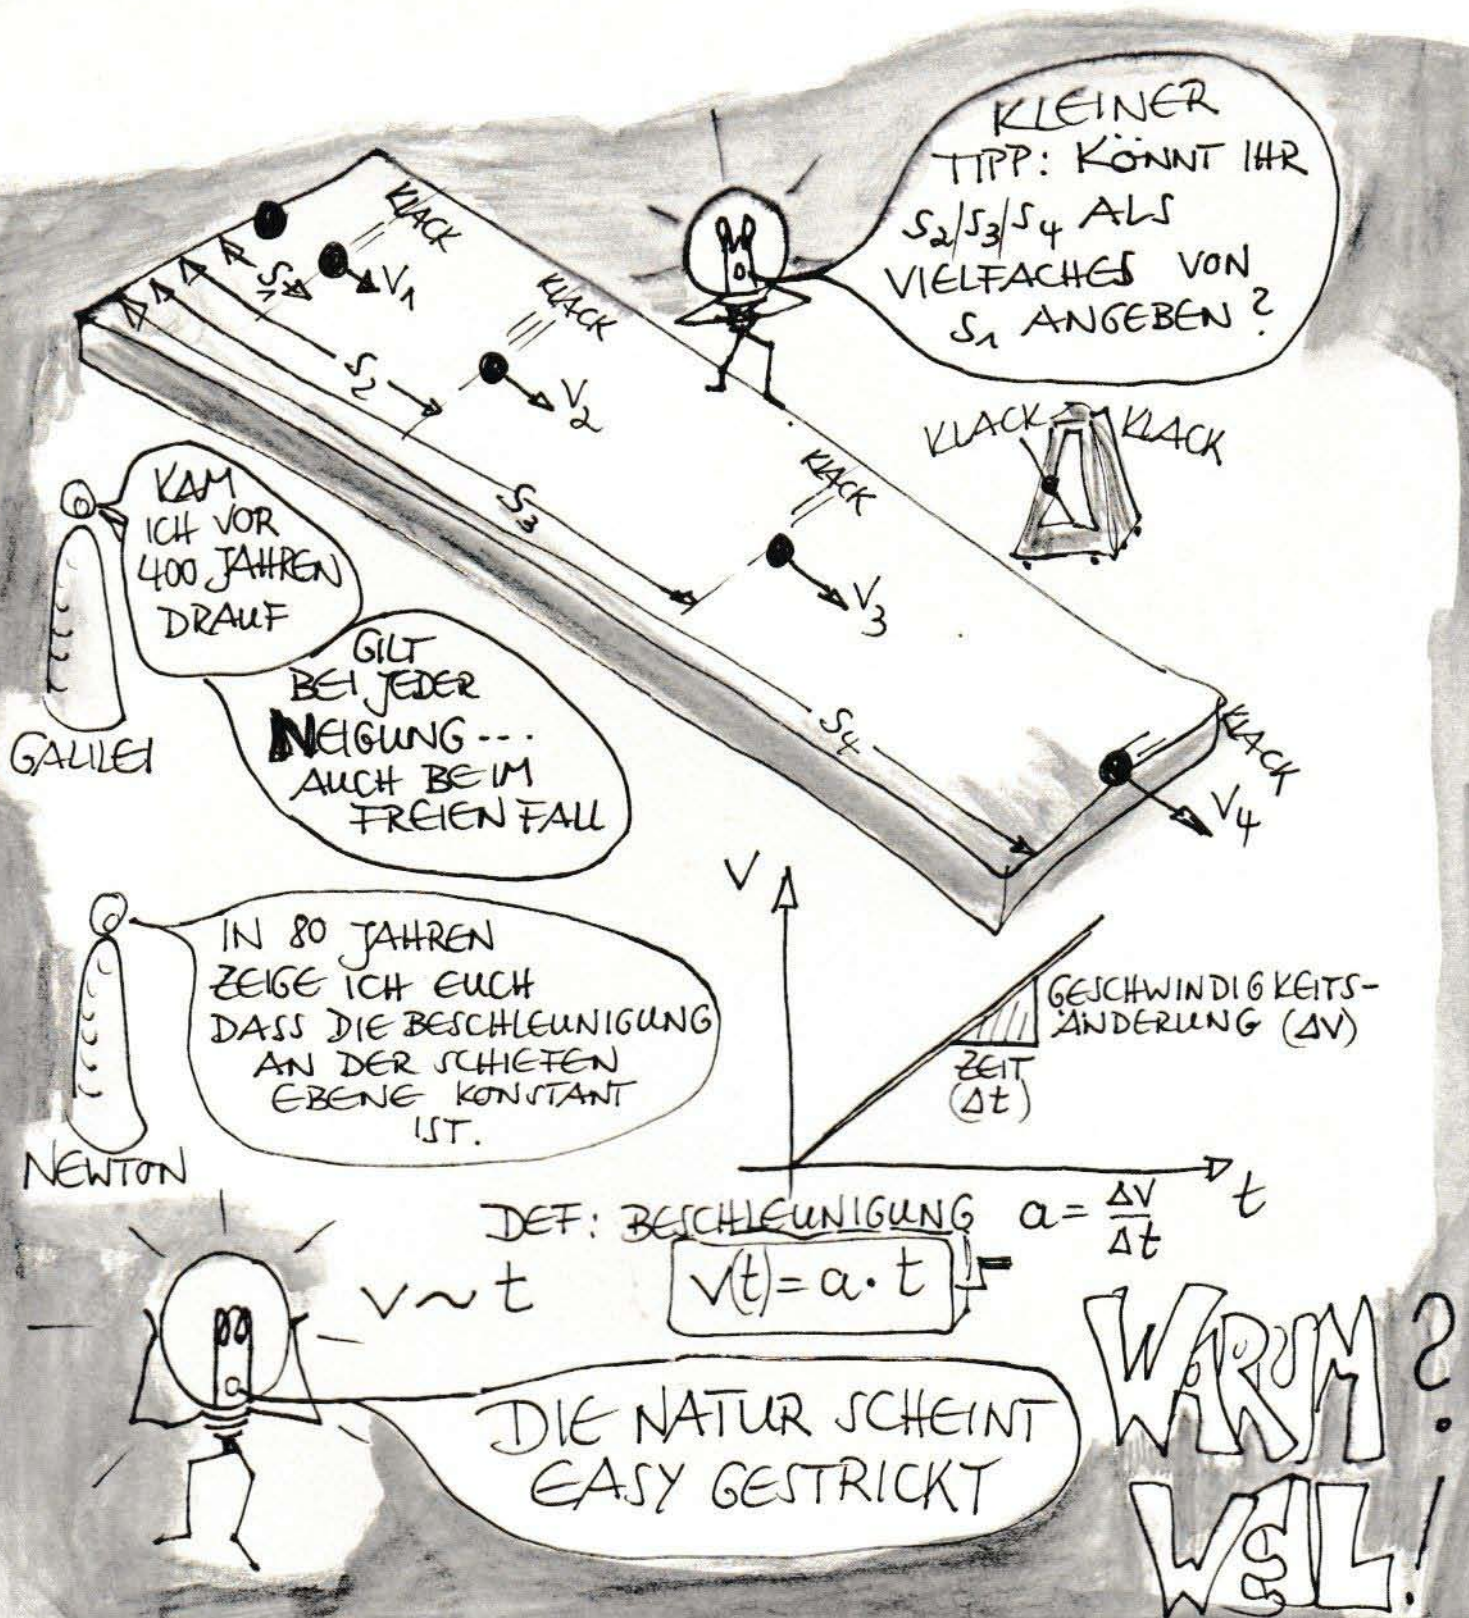 KLEINER
TIPP: KÖNNT IHR
S₂/S₃/S₄ ALS
VIELFACHES VON
S₁ ANGEBEN?
KLACK
S₁
V₁
KLACK
S₂
V₂
KLACK KLACK
KLACK
S₃
V₃
KAM
ICH VOR
400 JAHREN
DRAUF
GALILEI
GILT
BEI JEDER
NEIGUNG---
AUCH BEIM
FREIEN FALL
S₄
KLACK
V₄
IN 80 JAHREN
ZEIGE ICH EUCH
DASS DIE BESCHLEUNIGUNG
AN DER SCHIEFEN
EBENE KONSTANT
IST.
NEWTON
V
GESCHWINDIGKEITS-
ÄNDERUNG (ΔV)
ZEIT
(Δt)
t
DEF: BESCHLEUNIGUNG a = ΔV/Δt
v ~ t
v(t) = a · t
DIE NATUR SCHEINT
EASY GESTRICKT
WARUM?
WEIL!